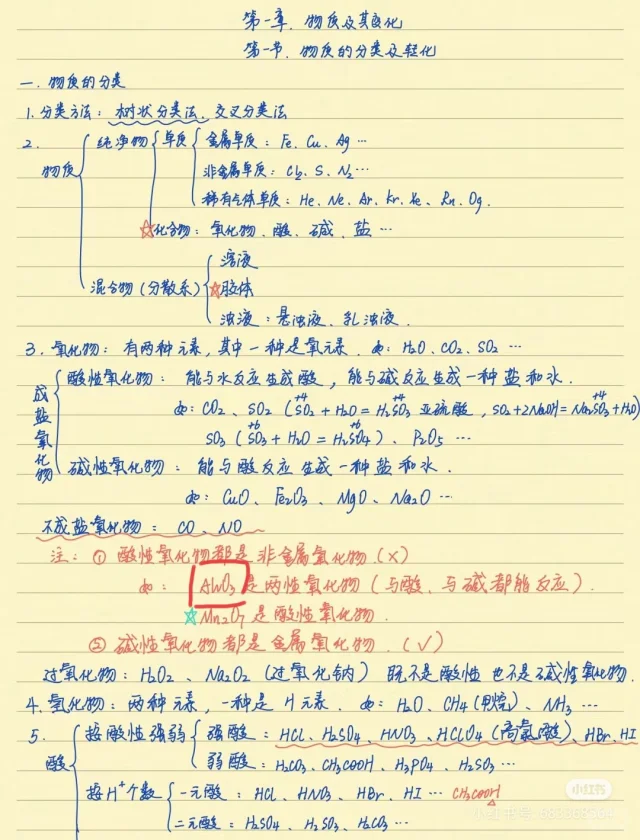 第一章. 物质及其变化
第一节. 物质的分类及转化
一. 物质的分类
1. 分类方法: 树状分类法、交叉分类法
2. 物质
纯净物
单质
金属单质: Fe、Cu、Ag…
非金属单质: Cl₂、S、N₂…
稀有气体单质: He、Ne、Ar、Kr、Xe、Rn、Og.
☆化合物: 氧化物、酸、碱、盐…
混合物 (分散系)
溶液
☆胶体
浊液: 悬浊液、乳浊液.
3. 氧化物: 有两种元素, 其中一种是氧元素. 如: H₂O、CO₂、SO₂…
成盐氧化物
酸性氧化物: 能与水反应生成酸, 能与碱反应生成一种盐和水.
如: CO₂、SO₂ (+4 SO₂ + H₂O = +4 H₂SO₃ 亚硫酸, SO₂+2NaOH = +4 Na₂SO₃+H₂O)
SO₃ (+6 SO₃ + H₂O = +6 H₂SO₄)、P₂O₅…
碱性氧化物: 能与酸反应生成一种盐和水.
如: CuO、Fe₂O₃、MgO、Na₂O…
不成盐氧化物: CO、NO
注: ① 酸性氧化物都是非金属氧化物.(×)
如: Al₂O₃是两性氧化物 (与酸、与碱都能反应).
☆Mn₂O₇是酸性氧化物.
② 碱性氧化物都是金属氧化物.(√)
过氧化物: H₂O₂、Na₂O₂ (过氧化钠) 既不是酸性也不是碱性氧化物.
4. 氢化物: 两种元素, 一种是H元素. 如: H₂O、CH₄(甲烷)、NH₃…
5. 酸
按酸性强弱
强酸: HCl、H₂SO₄、HNO₃、HClO₄ (高氯酸)、HBr、HI
弱酸: H₂CO₃、CH₃COOH、H₃PO₄、H₂SO₃…
按H⁺个数
一元酸: HCl、HNO₃、HBr、HI… CH₃COOH
二元酸: H₂SO₄、H₂SO₃、H₂CO₃…
小红书